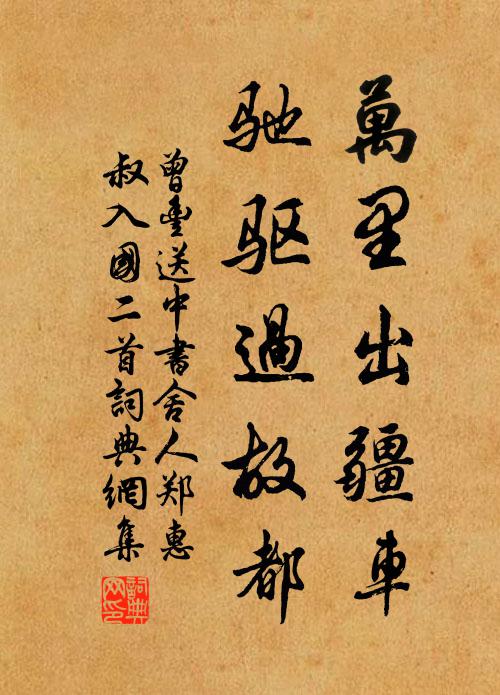 萬里出疆車
驰驱過故都
曾豐送中書舍人郑惠
叔入國二首詞典網集
詞典
网印